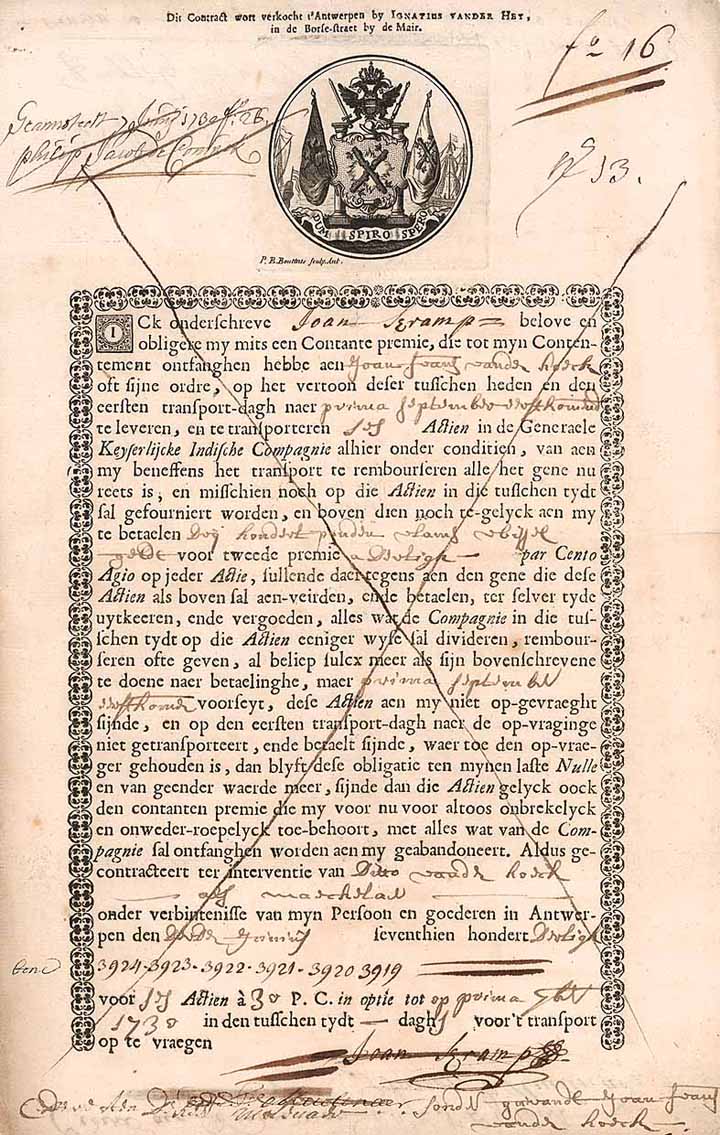 Dit Contract wort verkocht t'Antwerpen by IGNATIUS VANDER HEY,
in de Borse-straet by de Mair.
fo 16
No 13.
DUM SPIRO SPERO
P. B. Bouttats sculp. Ant.
ICk onderschreve Joan Kramp belove en
obligere my mits een Contante premie, die tot myn Conten-
tement ontfanghen hebbe aen Joan Frans vander hoeck
oft sijne ordre, op het vertoon deser tusschen heden en den
eersten transport-dagh naer prima september
te leveren, en te transporteren ses Actien in de Generaele
Keyserlijcke Indische Compagnie alhier onder conditien, van aen
my beneffens het transport te rembourseren alle het gene nu
reets is, en misschien noch op die Actien in die tusschen tydt
sal gefourniert worden, en boven dien noch te-gelyck aen my
te betaelen hondert ponden vlams wissel
geldt voor tweede premie a Dertigh par Cento
Agio op jeder Actie, sullende daer tegens aen den gene die dese
Actien als boven sal aen-veirden, ende betaelen, ter selver tyde
uytkeeren, ende vergoeden, alles wat de Compagnie in die tus-
schen tydt op die Actien eeniger wyse sal divideren, rembour-
seren ofte geven, al beliep sulcx meer als sijn bovenschrevene
te doene naer betaelinghe, maer prima september
voorseyt, dese Actien aen my niet op-gevraeght
sijnde, en op den eersten transport-dagh naer de op-vraginge
niet getransporteert, ende betaelt sijnde, waer toe den op-vrae-
ger gehouden is, dan blyft dese obligatie ten mynen laste Nulle
en van geender waerde meer, sijnde dan die Actien gelyck oock
den contanten premie die my voor nu voor altoos onbrekelyck
en onweder-roepelyck toe-behoort, met alles wat van de Com-
pagnie sal ontfanghen worden aen my geabandoneert. Aldus ge-
contracteert ter interventie van Ditto vander hoeck
als maeckelaer
onder verbintenisse van myn Persoon en goederen in Antwer-
pen den Derde Junius seventhien hondert Dertigh
3924-3923-3922-3921-3920 3919
voor ses Actien à 30 P. C. in optie tot op prima 7ber
1730 in den tusschen tydt — daghs voor't transport
op te vraegen
Joan Kramp
Joan Frans
vander hoeck